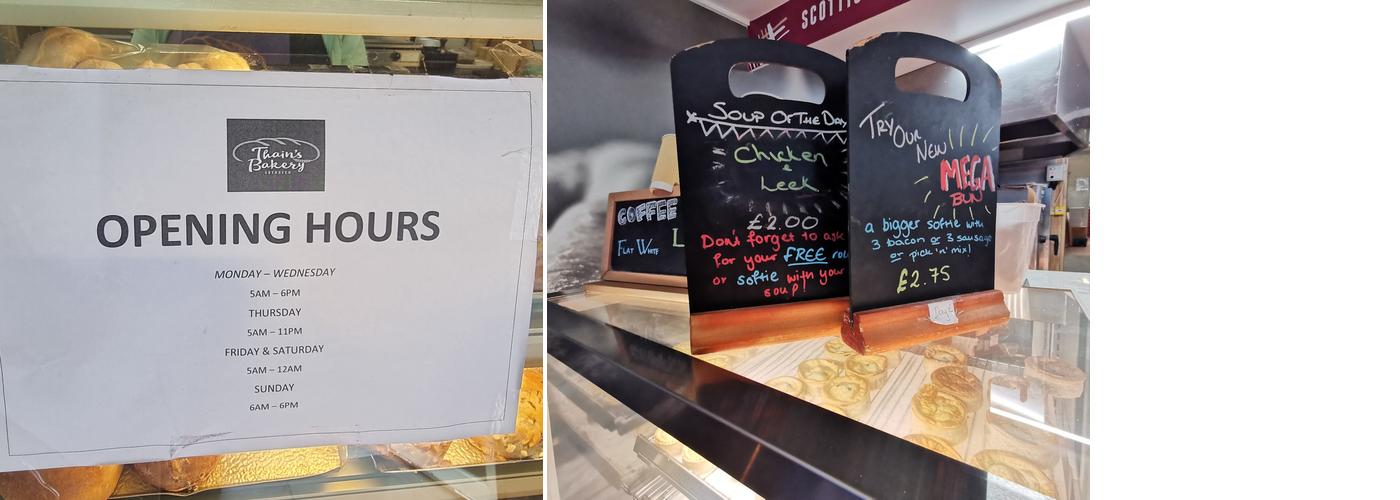 Thain's
Bakery
OPENING HOURS
MONDAY – WEDNESDAY
5AM – 6PM
THURSDAY
5AM – 11PM
FRIDAY & SATURDAY
5AM – 12AM
SUNDAY
6AM – 6PM
SCOTTIS
COFFEE
FLAT WHITE
L
SOUP OF THE DAY
Chicken
&
Leek
£2.00
Don't forget to ask
for your FREE
or softie with your
soup!
TRY OUR
NEW
MEGA
BUN
a bigger softie with
3 bacon or 3 sausage
or pick 'n' mix!
£2.75